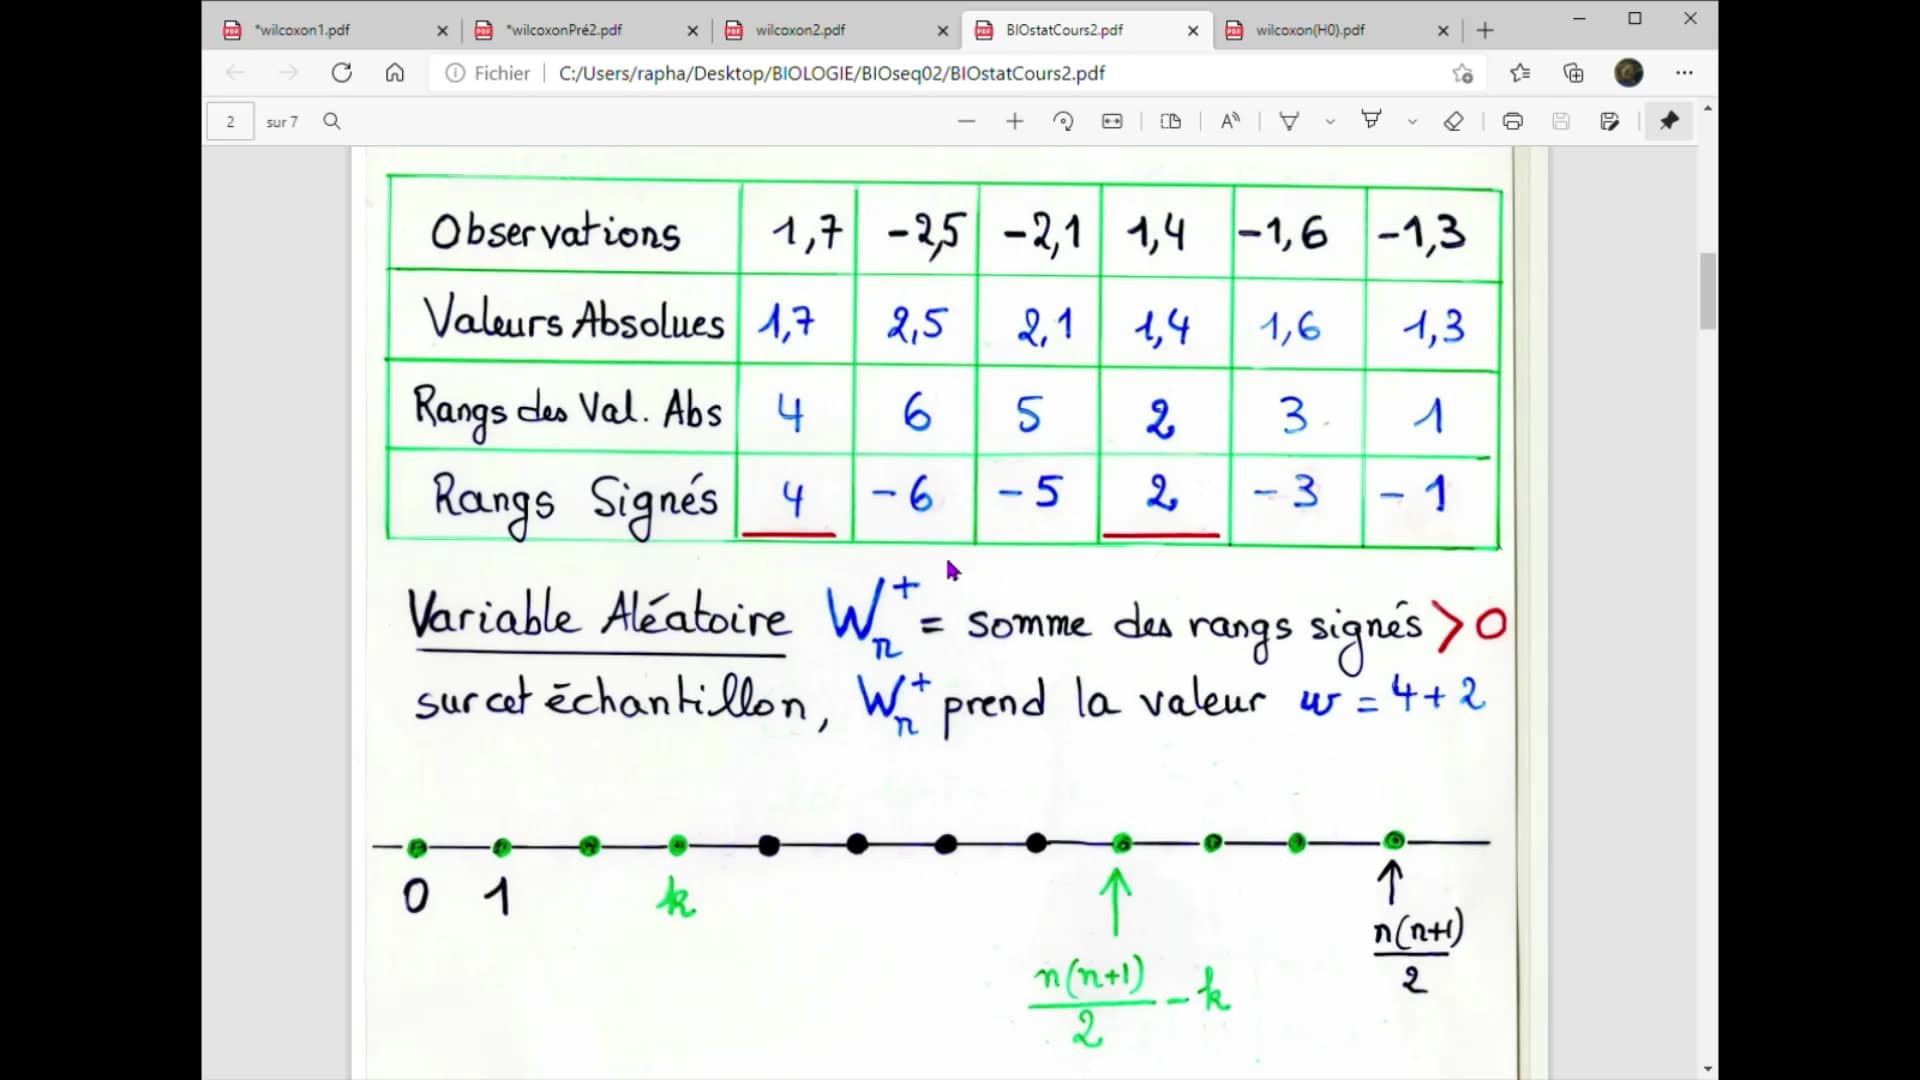 *wilcoxon1.pdf *wilcoxonPré2.pdf wilcoxon2.pdf BIOstatCours2.pdf wilcoxon(H0).pdf
Fichier C:/Users/rapha/Desktop/BIOLOGIE/BIOseq02/BIOstatCours2.pdf
2 sur 7
Observations 1,7 -2,5 -2,1 1,4 -1,6 -1,3
Valeurs Absolues 1,7 2,5 2,1 1,4 1,6 1,3
Rangs des Val. Abs 4 6 5 2 3 1
Rangs Signés 4 -6 -5 2 -3 -1
Variable Aléatoire Wₙ⁺ = somme des rangs signés > 0
sur cet échantillon, Wₙ⁺ prend la valeur w = 4+2
0 1 k
n(n+1)/2 - k
n(n+1)/2